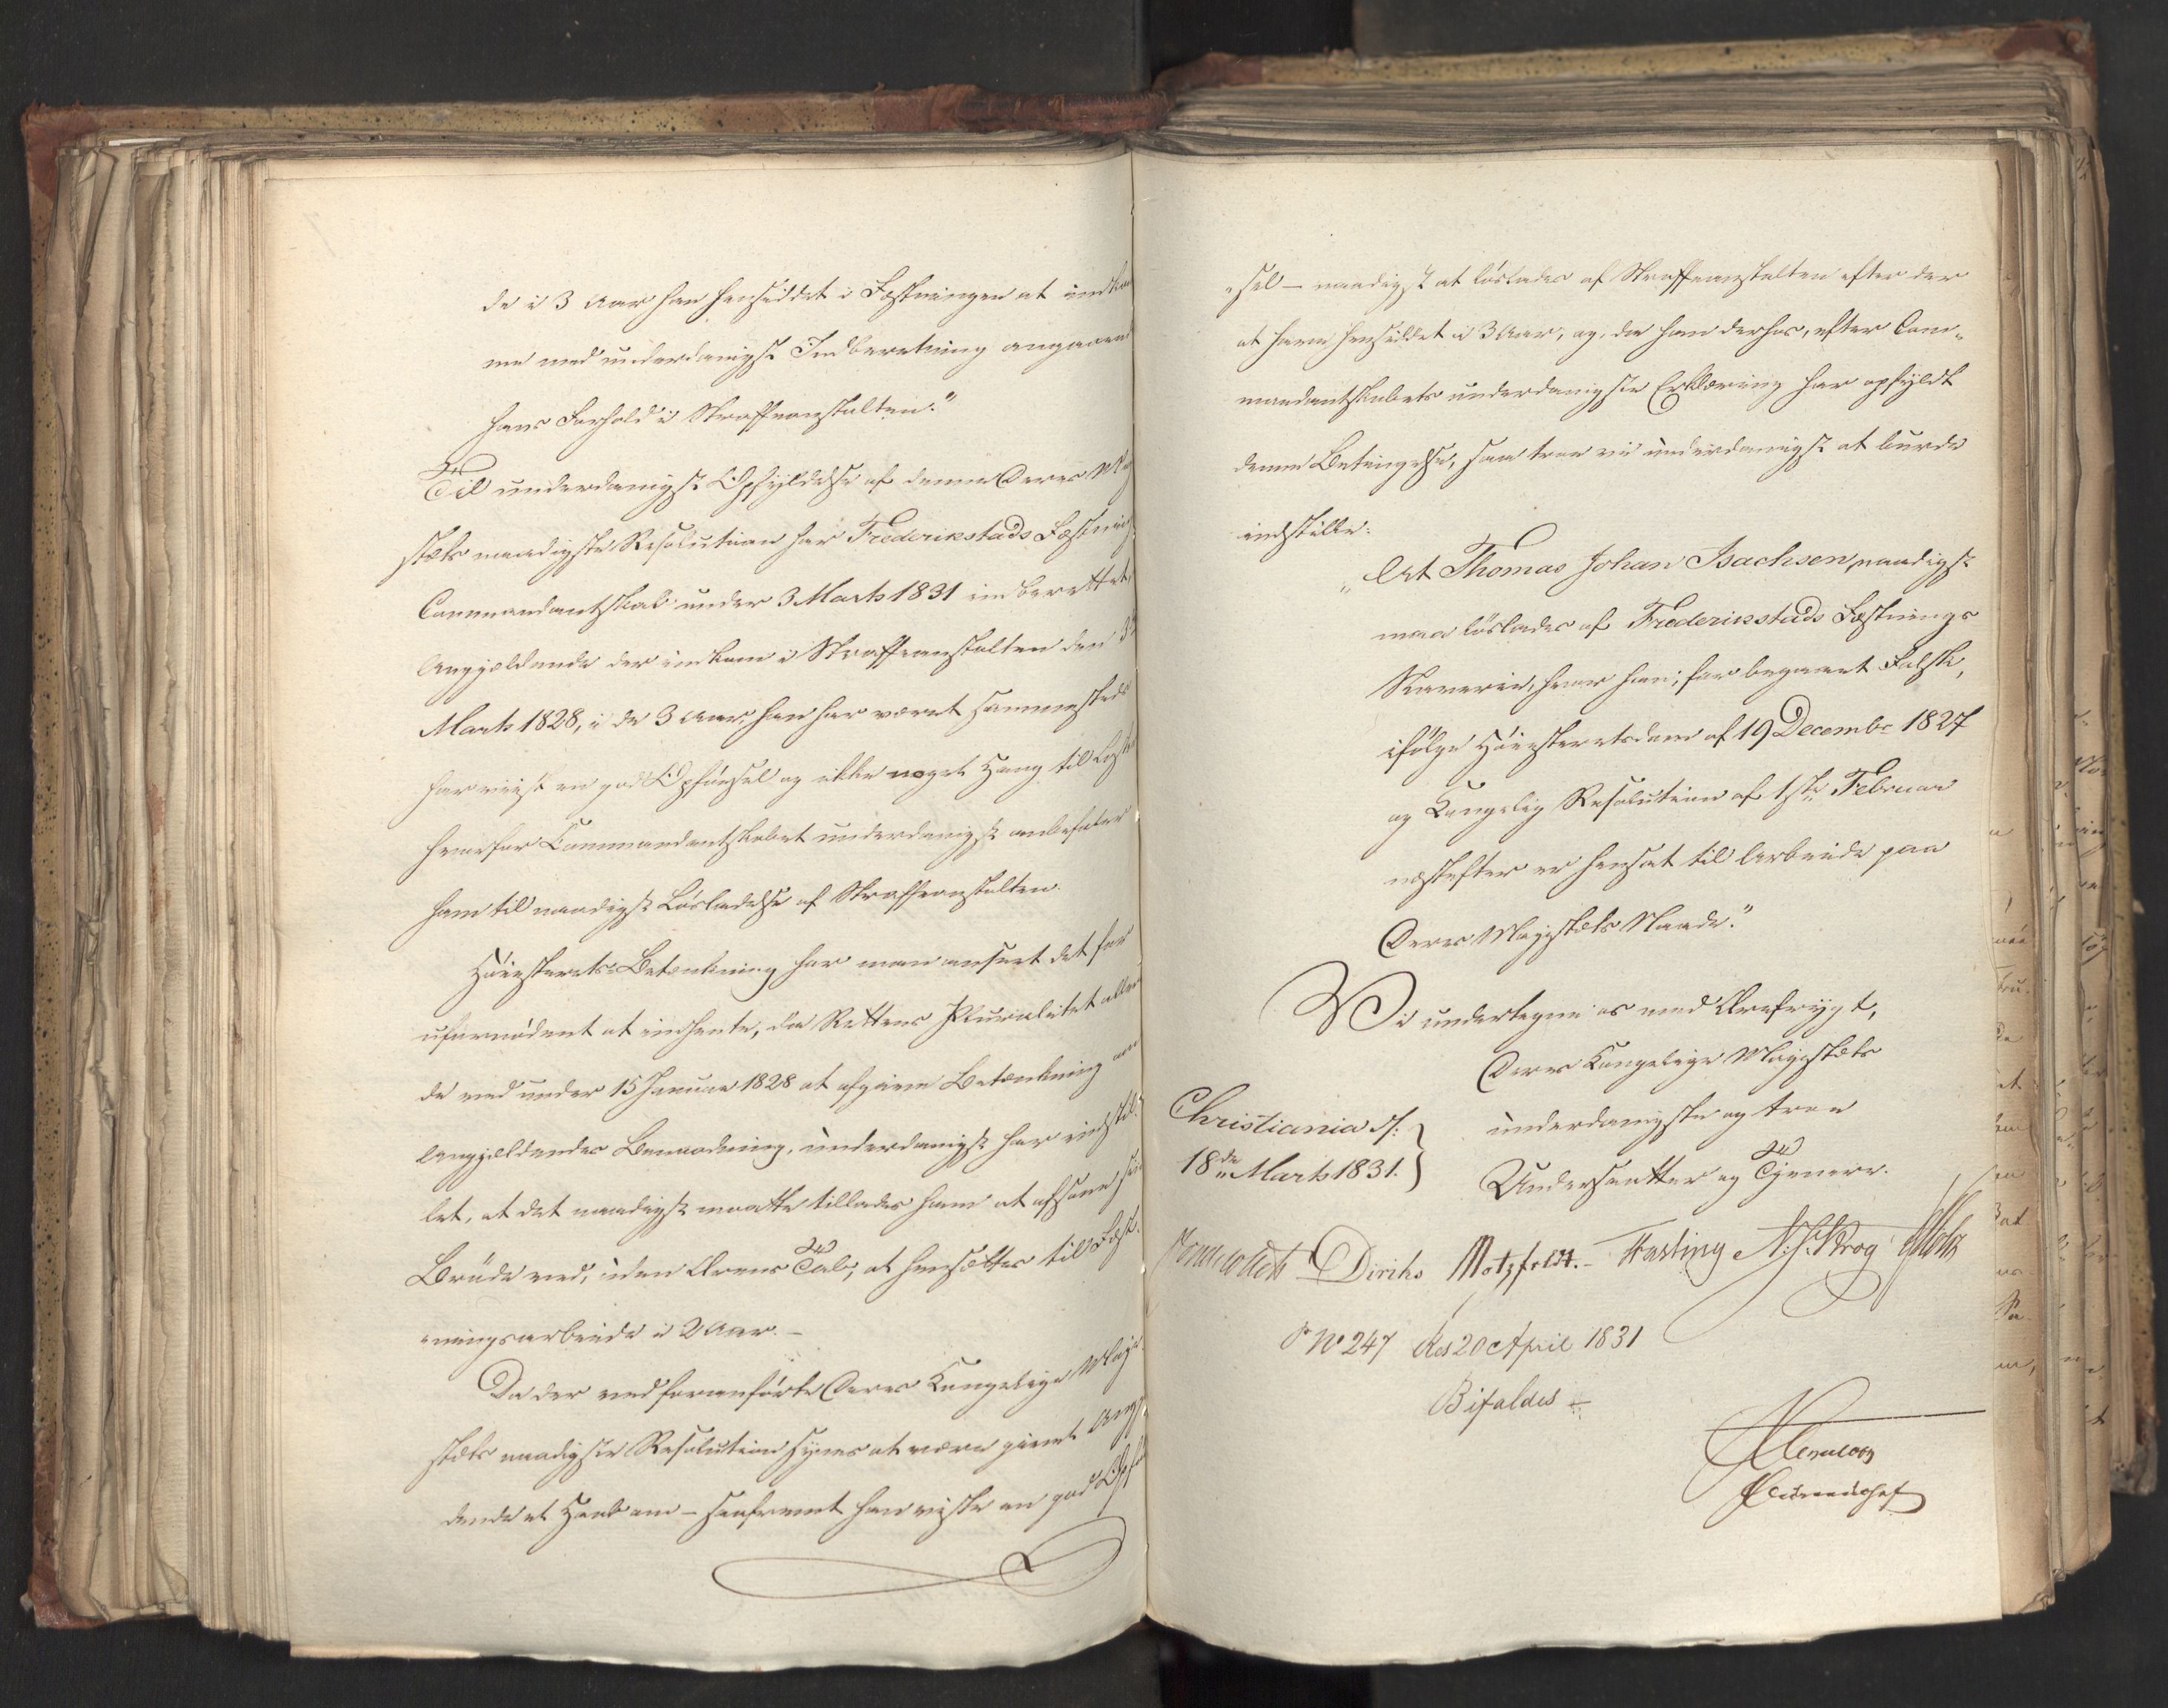 de i 3 Aar har hensiddet i Fæstningen at indkom
me med underdanigst Indberetning angaaen
hans Forhold i Straffeanstalten."
Til underdanigst Opfyldelse af denne Deres Maj
stæts naadigste Resolution har Frederikstads Fæstning
Commandantskab under 3 Marts 1831 indberettet,
Angjældende der indkom i Straffeanstalten den 3
Marts 1828, i de 3 Aar, han har været sammesteds
har viist en god Opførsel og ikke noget Hang til
hvorfor Commandantskabet underdanigst anbefaler
ham til naadigst Løsladelse af Straffeanstalten.
Høiesterets Betænkning har man anseet det for
ufornødent at indhente, da Rettens Pluralitet aller
de ved under 15 Januar 1828 at afgive Betænkning om
Angjældendes Benaadning, underdanigst har indstil-
let, at det naadigst maatte tillades ham at afsone sin
Brøde med, uden Ærens Tab, at hensættes til Fæst-
ningsarbeide i 2 Aar. –
Da der ved foranførte Deres Kongelige Maje-
stæts naadigste Resolution synes at være givet Angj
dende et Haab om – saafremt han viste en god Opfø
"sel – naadigst at løslades af Straffeanstalten efter der
at have hensiddet i 3 Aar, og, da han derhos, efter Com-
mandantskabets underdanigste Erklæring har opfyldt
denne Betingelse, saa troe vi underdanigst at burde
indstille:
"At Thomas Johan Isachsen naadigst
maa løslades af Frederikstads Fæstnings
Slaverie, hvor han, for begaaet Falsk,
ifølge Høiesteretsdom af 19 Decembr 1827
og Kongelig Resolution af 1ste Februar
næstefter er hensat til Arbeide paa
Deres Majestæts Naade."
Vi undertegne os med Ærefrygt,
Deres Kongelige Majestæts
Christiania d:
underdanigste og troe
18de Marts 1831.
Undersaatter og Tjenere.
Diriks Motzfeldt. Fasting N. J. Krog
P No 247 Res 20 April 1831
Bifaldes